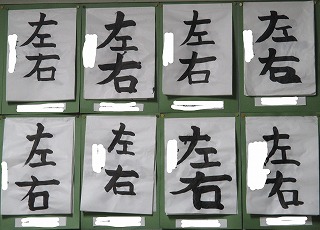 左右
左右
左右
左右
左右
左右
左右
左右